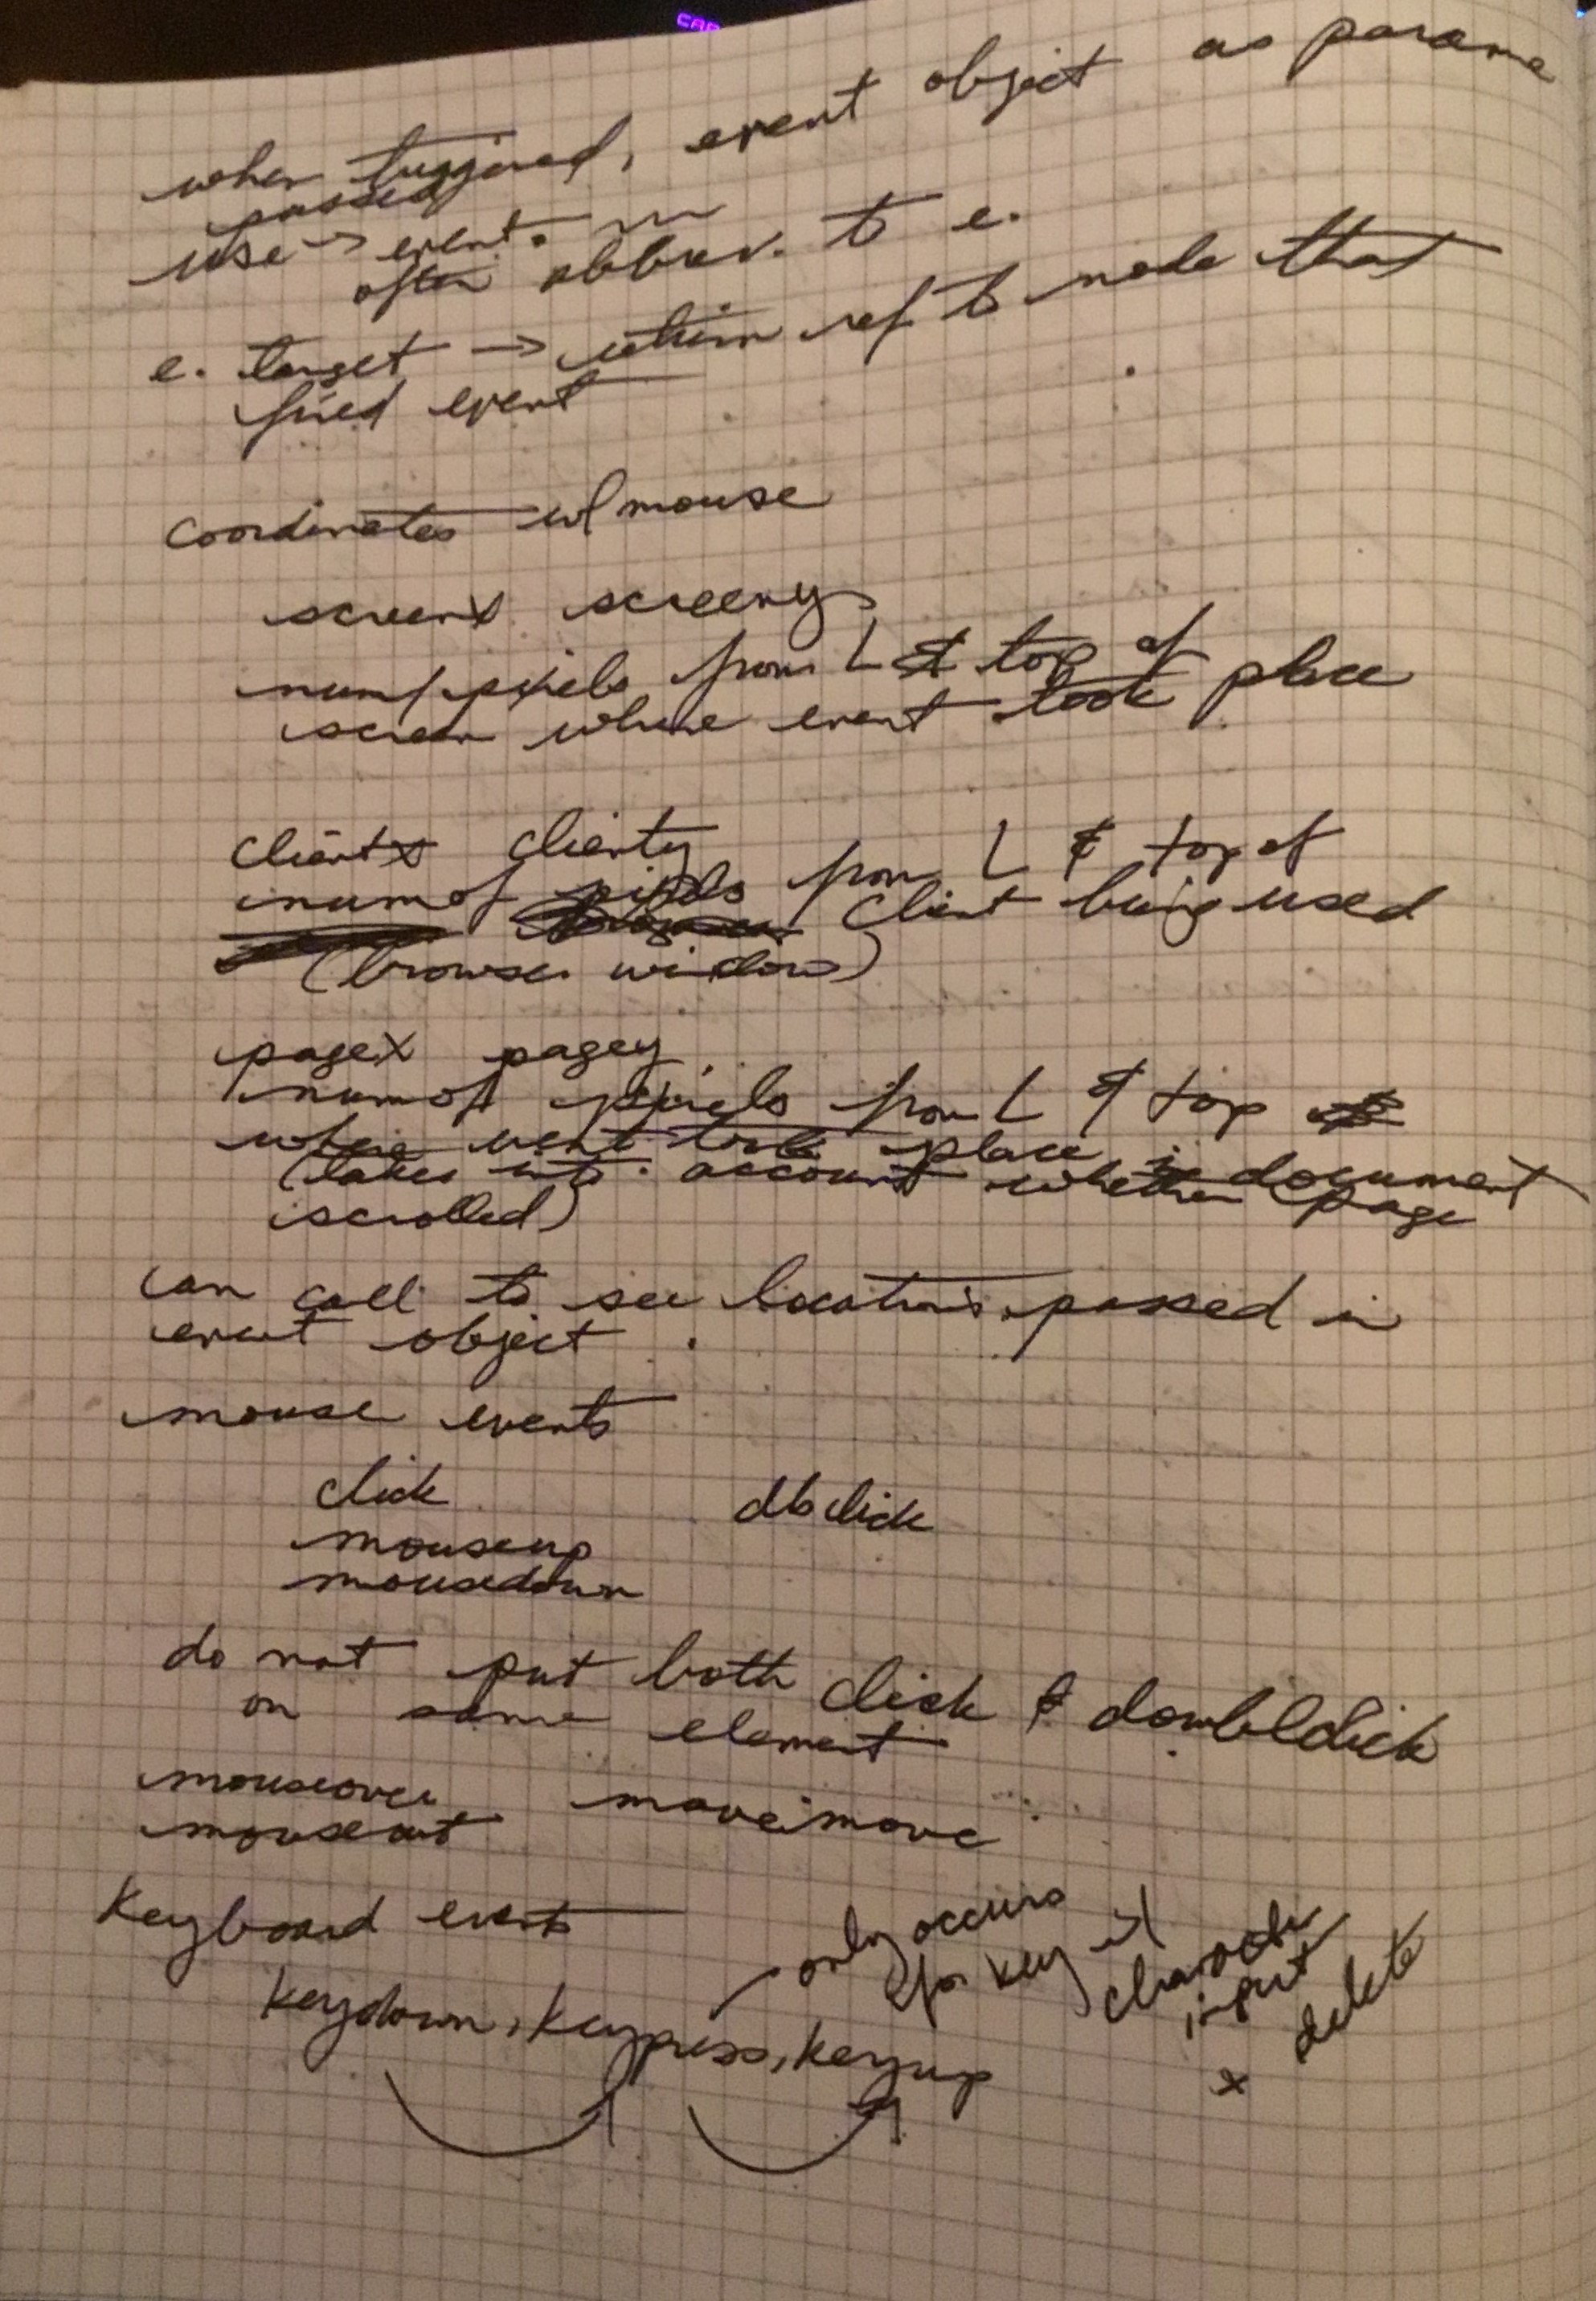 when triggered, event object as parame
passed
use -> event.
often abbrev. to e.
e. target -> return ref to node that
fired event
coordinates w/ mouse
screenX screeny
num/pixels from L & top of
screen where event took place
clientX clienty
num of pixels from L & top of
client being used
(browser window)
pageX pagey
num of pixels from L & top
where event took place in document
(takes into account whether page
scrolled)
can call to see locations passed in
event object
mouse events
click dbclick
mouseup
mousedown
do not put both click & doubleclick
on same element
mouseover movemove
mouseout
Keyboard events
only occurs
for key w/
character
input
x delete
keydown, keypress, keyup